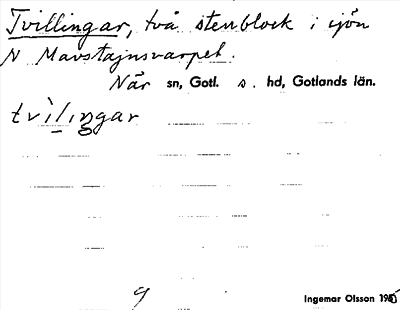 Tvillingar, två stenblock i sjön
N Mavstajnsvarpet.
När sn, Gotl. s. hd, Gotlands län.
tvìlıŋgar
9
Ingemar Olsson 1950